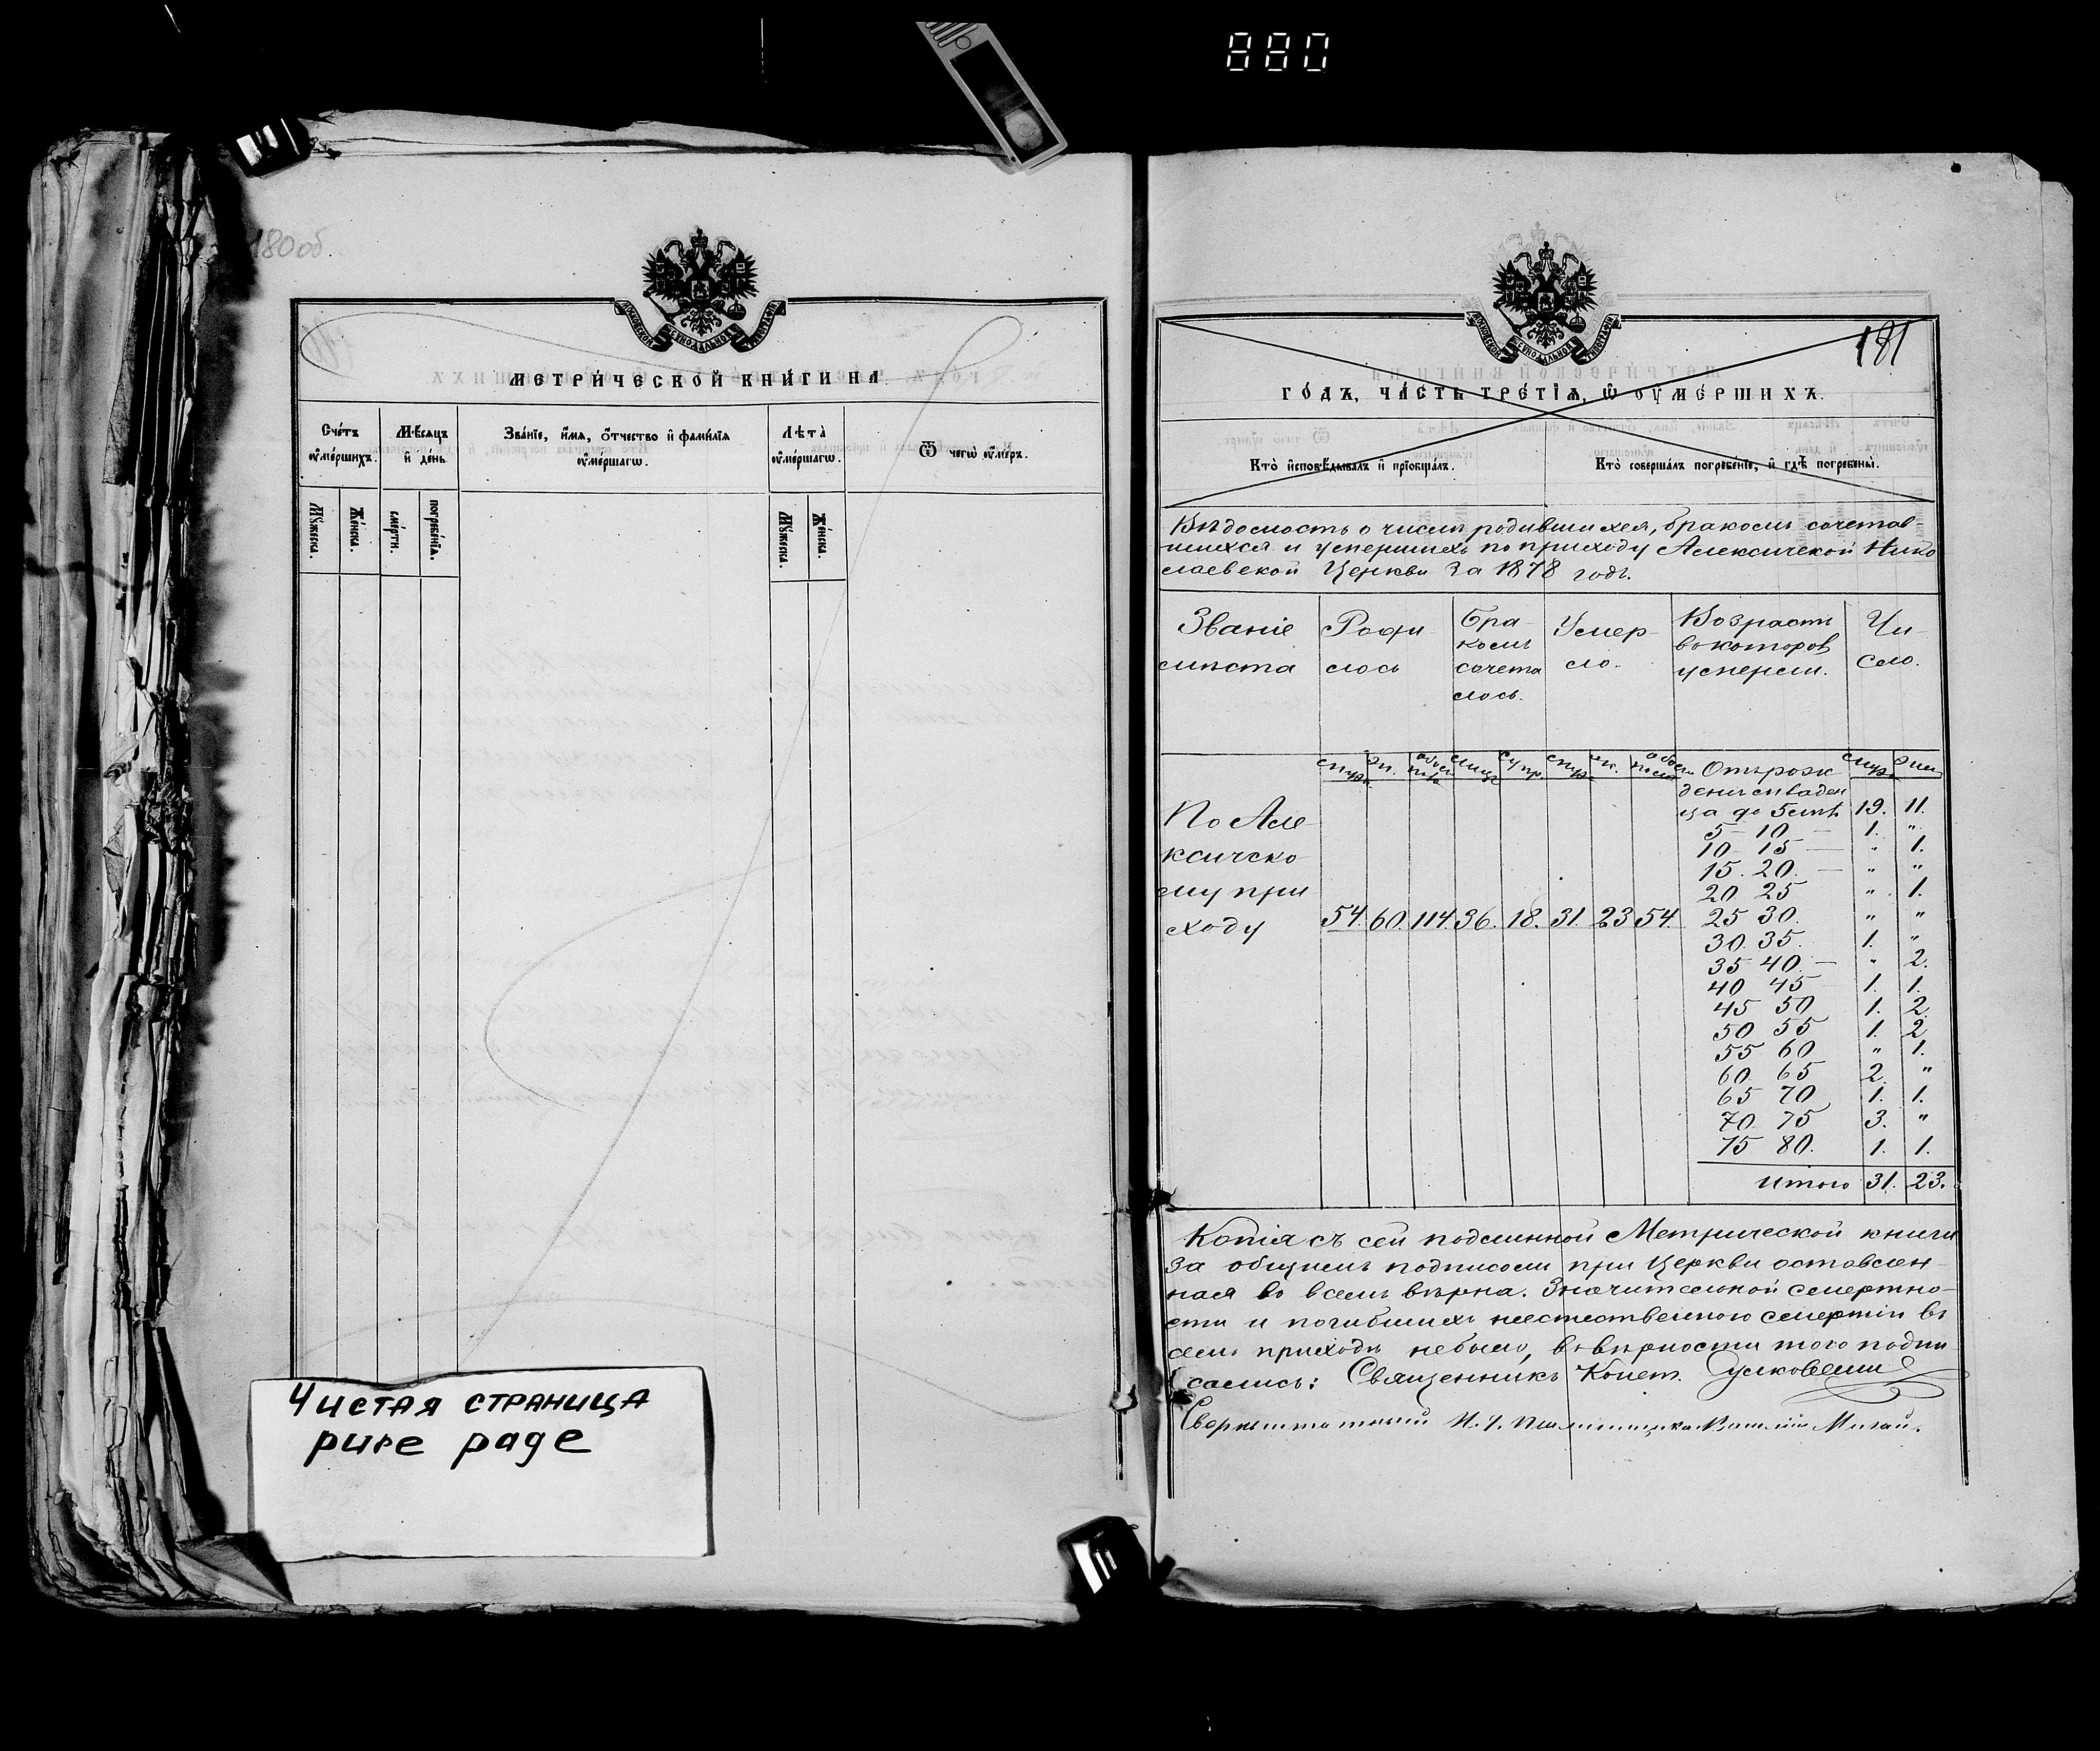 880
180 об.
МЕТРИЧЕСКОЙ КНИГИ НА
Счетъ умершихъ.
Мѣсяцъ и день.
Званіе, имя, отчество и фамилія умершагѡ.
Лѣта умершагѡ.
Ѿ чегѡ умеръ.
Мужеска.
Женска.
смерти.
погребенія.
Мужеска.
Женска.
Чистая страница
pure page
181
ГОДЪ, ЧАСТЬ ТРЕТІЯ, Ѡ УМЕРШИХЪ.
Кто исповѣдывалъ и пріобщалъ.
Кто совершалъ погребеніе, и гдѣ погребены.
Вѣдомость о числѣ родившихся, бракомъ сочетав-
шихся и умершихъ по приходу Алексичской Нико
лаевской Церкви за 1878 годъ.
Званіе мѣста
Роди лось
Бра- комъ сочета лось.
Умер- ло.
Возрастъ в которов умерли.
Чи- сло.
муж. жн. обоего пола муж. супр. муж. жн. обоего пола
муж. жен.
По Але-
ксичско-
му при
ходу
54. 60. 114. 36. 18. 31. 23 54.
Отърож
денiя младен
ца до 5 лѣтъ 19. 11.
5 - 10 — 1. "
10 - 15 — " 1.
15. 20. — " "
20 25 " 1.
25 30. " "
30. 35. 1. "
35 40. — " 2.
40 45 1. 1.
45 50 1. 2.
50 55 1. 2
55 60 " 1.
60. 65 2. "
65 70 1. 1.
70. 75 3. "
75 80. 1. 1.
Итого 31. 23.
Копія съ сей подлинной Метрической книги
за общимъ подписомъ при Церкви оставлен-
ная во всемъ вѣрна. Значительной смертно-
сти и погибшихъ неестественною смертію въ
семъ приходѣ небыло, въ вѣрности того подпи
сались: Священникъ Конст.
Сверхштатный И. д. Псаломщика Василій